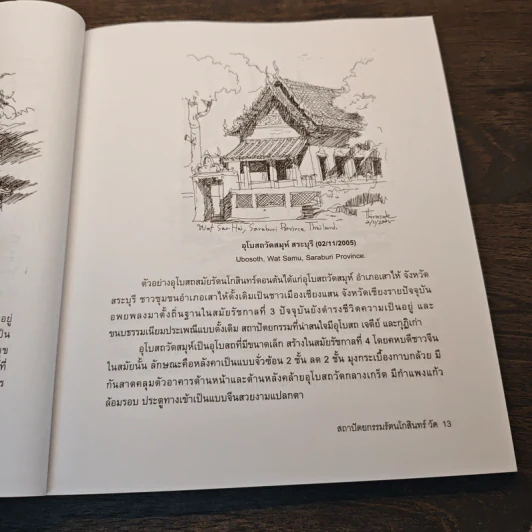 Wat Sao Hai, Saraburi Province Thailand.
อุโบสถวัดสมุห์ สระบุรี (02/11/2005)
Ubosoth, Wat Samu, Saraburi Province.
ตัวอย่างอุโบสถสมัยรัตนโกสินทร์ตอนต้นได้แก่อุโบสถวัดสมุห์ อำเภอเสาไห้ จังหวัด
สระบุรี ชาวชุมชนอำเภอเสาไห้ดั้งเดิมเป็นชาวเมืองเชียงแสน จังหวัดเชียงรายปัจจุบัน
อพยพลงมาตั้งถิ่นฐานในสมัยรัชกาลที่ 3 ปัจจุบันยังดำรงชีวิตความเป็นอยู่ และ
ขนบธรรมเนียมประเพณีแบบดั้งเดิม สถาปัตยกรรมที่น่าสนใจมีอุโบสถ เจดีย์ และกุฏิเก่า
อุโบสถวัดสมุห์เป็นอุโบสถที่มีขนาดเล็ก สร้างในสมัยรัชกาลที่ 4 โดยคหบดีชาวจีน
ในสมัยนั้น ลักษณะคือหลังคาเป็นแบบจั่วซ้อน 2 ชั้น ลด 2 ชั้น มุงกระเบื้องกาบกล้วย มี
กันสาดคลุมตัวอาคารด้านหน้าและด้านหลังคล้ายอุโบสถวัดกลางเกร็ด มีกำแพงแก้ว
ล้อมรอบ ประตูทางเข้าเป็นแบบจีนสวยงามแปลกตา
สถาปัตยกรรมรัตนโกสินทร์ วัด 13